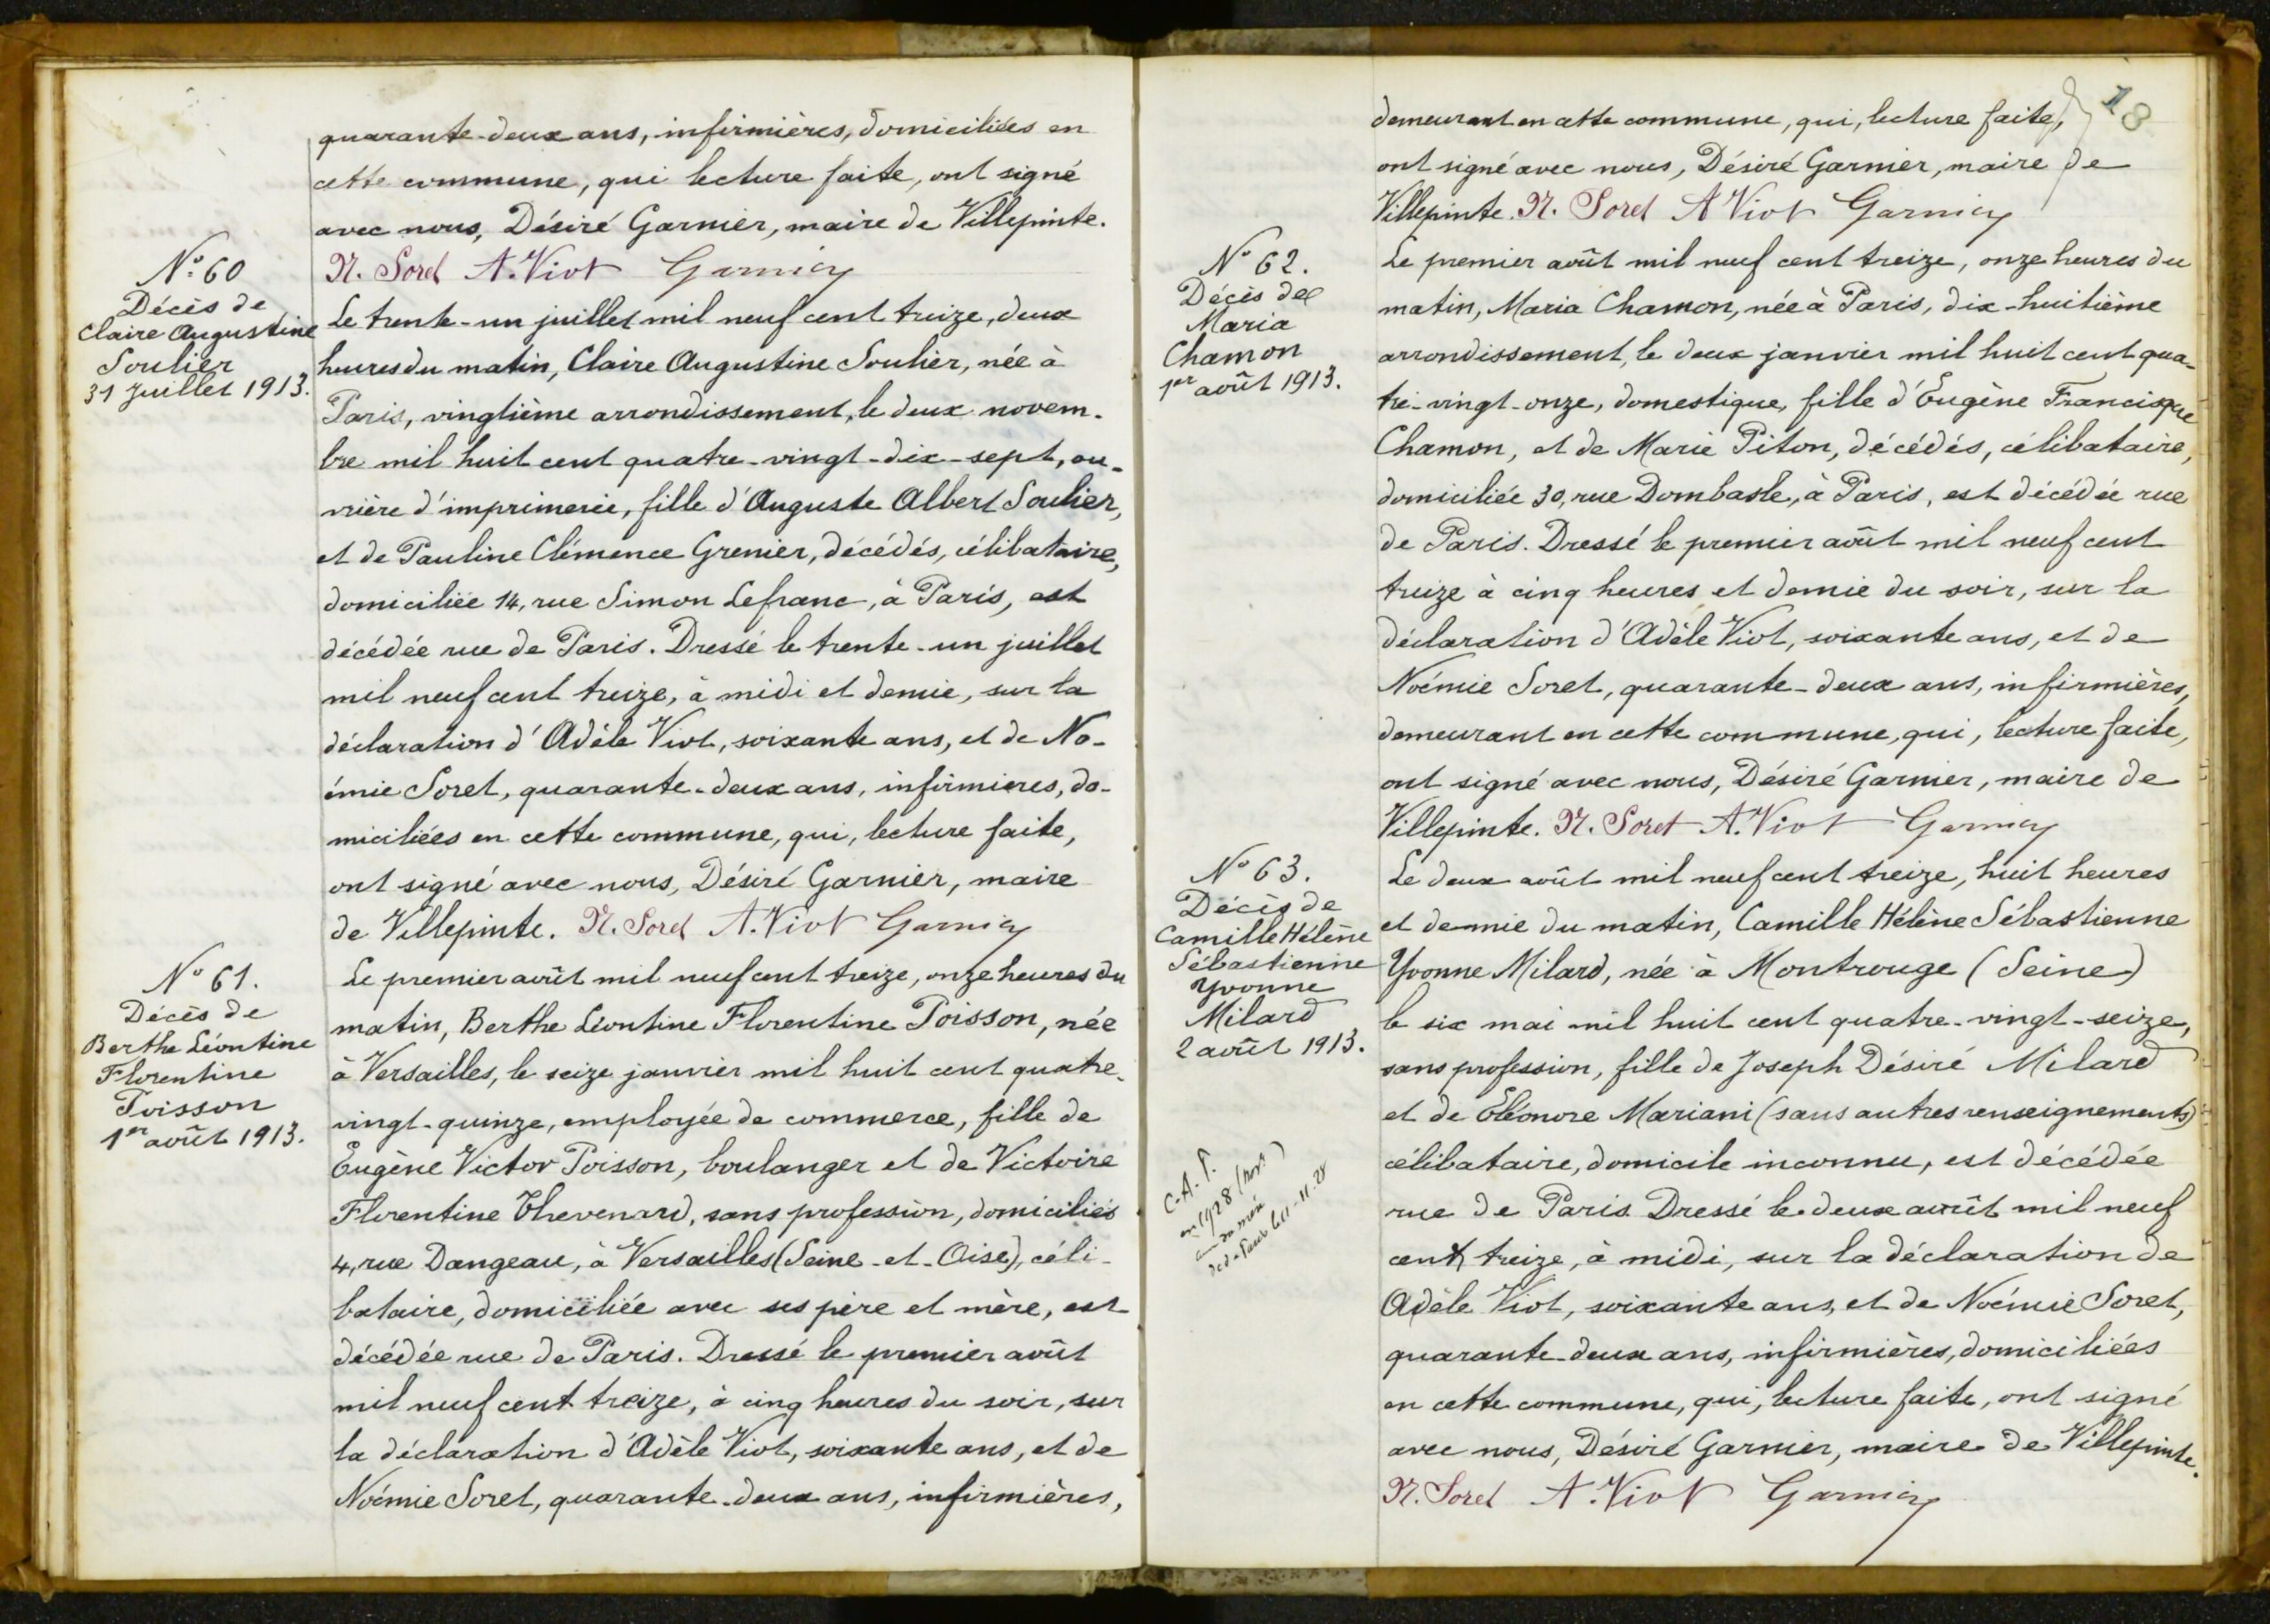 quarante-deux ans, infirmières, domiciliées en
cette commune, qui lecture faite, ont signé
avec nous, Désiré Garnier, maire de Villepinte.
N. Soret A. Viot Garnier
N° 60
Décès de
Claire Augustine
Soulier
31 Juillet 1913.
Le trente-un juillet mil neuf cent treize, deux
heures du matin, Claire Augustine Soulier, née à
Paris, vingtième arrondissement, le deux novem-
bre mil huit cent quatre-vingt-dix-sept, ou-
vrière d'imprimerie, fille d'Auguste Albert Soulier,
et de Pauline Clémence Grenier, décédés, célibataire,
domiciliée 14, rue Simon Lefranc, à Paris, est
décédée rue de Paris. Dressé le trente-un juillet
mil neuf cent treize, à midi et demie, sur la
déclaration d'Adèle Viot, soixante ans, et de No-
émie Soret, quarante-deux ans, infirmieres, do-
miciliées en cette commune, qui, lecture faite,
ont signé avec nous, Désiré Garnier, maire
de Villepinte. N. Soret A. Viot Garnier
N° 61.
Décès de
Berthe Léontine
Florentine
Poisson
1er août 1913.
Le premier août mil neuf cent treize, onze heures du
matin, Berthe Léontine Florentine Poisson, née
à Versailles, le seize janvier mil huit cent quatre-
vingt-quinze, employée de commerce, fille de
Eugène Victor Poisson, boulanger et de Victoire
Florentine Thevenard, sans profession, domiciliés
4, rue Dangeau, à Versailles (Seine-et-Oise), céli-
bataire, domiciliée avec ses père et mère, est
décédée rue de Paris. Dressé le premier août
mil neuf cent treize, à cinq heures du soir, sur
la déclaration d'Adèle Viot, soixante ans, et de
Noémie Soret, quarante-deux ans, infirmières,
18
demeurant en cette commune, qui, lecture faite,
ont signé avec nous, Désiré Garnier, maire de
Villepinte. N. Soret A Viot Garnier
N° 62.
Décès de
Maria
Chamon
1er août 1913.
Le premier août mil neuf cent treize, onze heures du
matin, Maria Chamon, née à Paris, dix-huitième
arrondissement, le deux janvier mil huit cent qua-
tre-vingt-onze, domestique, fille d'Eugène Francisque
Chamon, et de Marie Piton, décédés, célibataire,
domiciliée 30, rue Dombasle, à Paris, est décédée rue
de Paris. Dressé le premier août mil neuf cent
treize à cinq heures et demie du soir, sur la
déclaration d'Adèle Viot, soixante ans, et de
Noémie Soret, quarante-deux ans, infirmières,
demeurant en cette commune, qui, lecture faite,
ont signé avec nous, Désiré Garnier, maire de
Villepinte. N. Soret A. Viot Garnier
N° 63.
Décès de
Camille Hélène
Sébastienne
Yvonne
Milard
2 août 1913.
Le deux août mil neuf cent treize, huit heures
et demie du matin, Camille Hélène Sébastienne
Yvonne Milard, née à Montrouge (Seine)
le six mai mil huit cent quatre-vingt-seize,
sans profession, fille de Joseph Désiré Milard
et de Eléonore Mariani (sans autres renseignements)
célibataire, domicile inconnu, est décédée
rue de Paris Dressé le deux août mil neuf
cent treize, à midi, sur la déclaration de
Adèle Viot, soixante ans, et de Noémie Soret,
quarante-deux ans, infirmières, domiciliées
en cette commune, qui, lecture faite, ont signé
avec nous, Désiré Garnier, maire de Villepinte.
N. Soret A. Viot Garnier